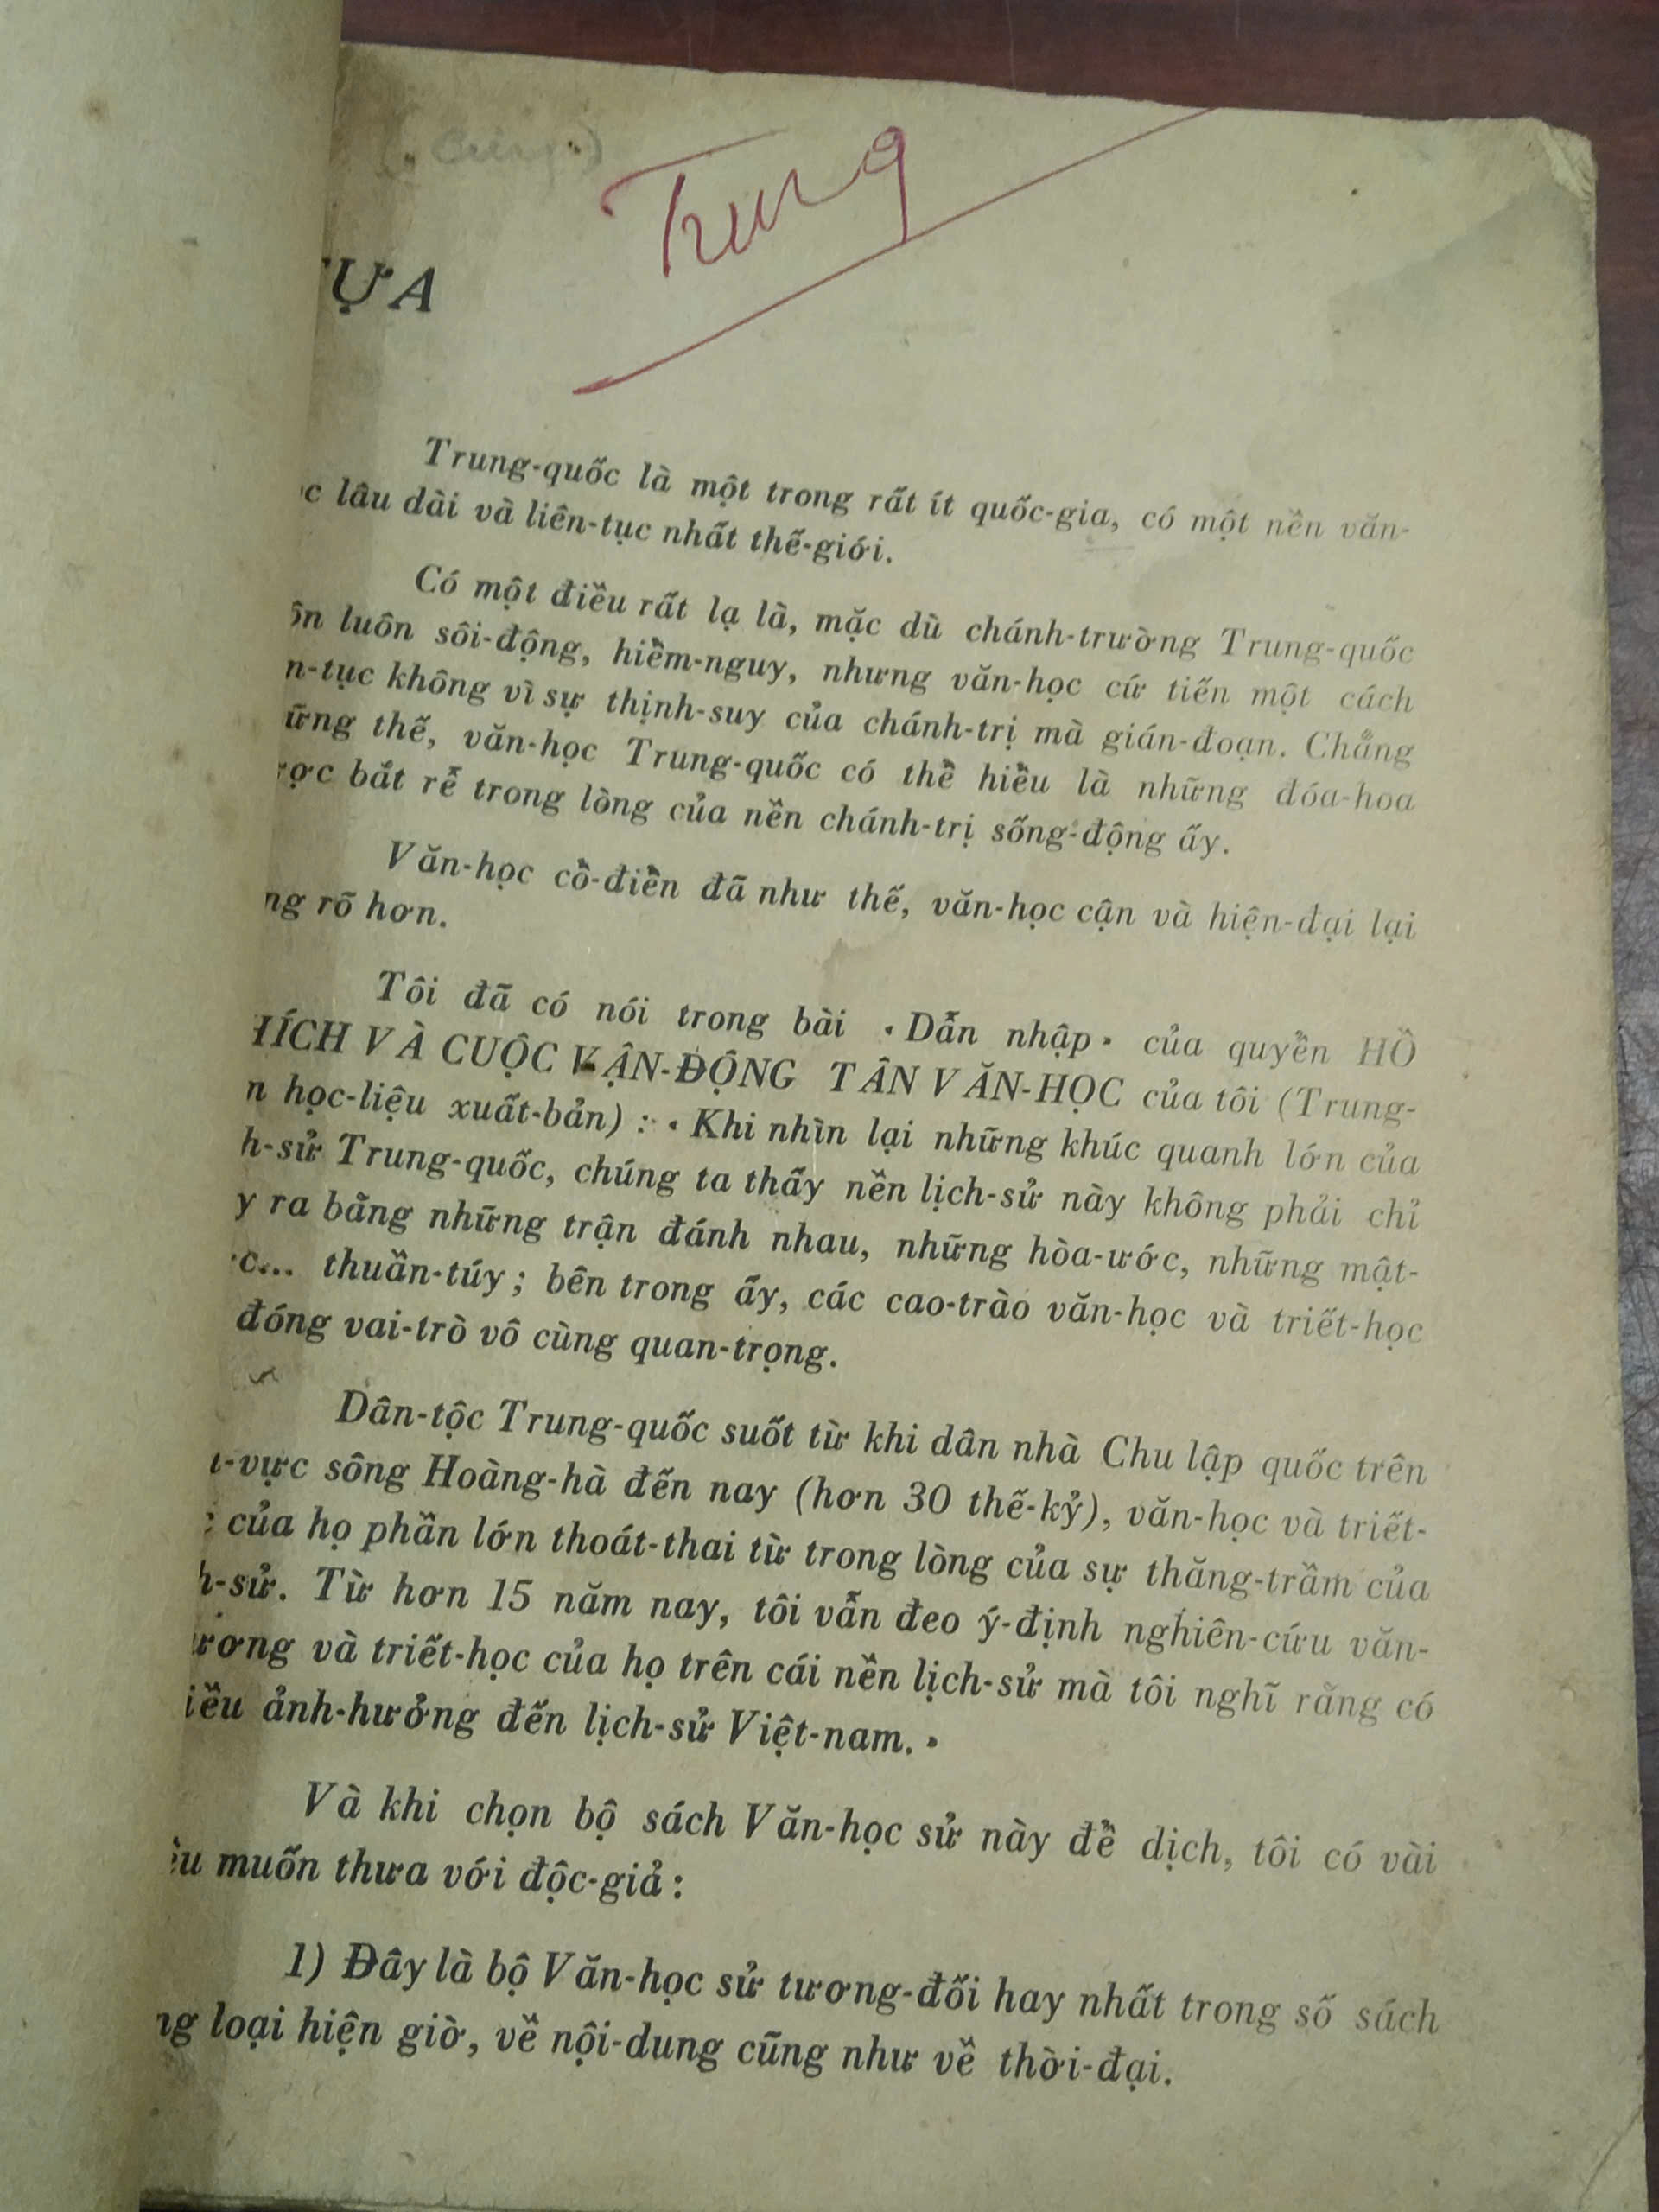 Trung
ỰA
Trung-quốc là một trong rất ít quốc-gia, có một nền văn-
c lâu dài và liên-tục nhất thế-giới.
Có một điều rất lạ là, mặc dù chánh-trường Trung-quốc
ôn luôn sôi-động, hiềm-nguy, nhưng văn-học cứ tiến một cách
n-tục không vì sự thịnh-suy của chánh-trị mà gián-đoạn. Chẳng
ững thế, văn-học Trung-quốc có thể hiểu là những đóa-hoa
ợc bắt rễ trong lòng của nền chánh-trị sống-động ấy.
Văn-học cổ-điển đã như thế, văn-học cận và hiện-đại lại
ng rõ hơn.
Tôi đã có nói trong bài « Dẫn nhập » của quyển HỒ
HÍCH VÀ CUỘC VẬN-ĐỘNG TÂN VĂN-HỌC của tôi (Trung-
n học-liệu xuất-bản) : « Khi nhìn lại những khúc quanh lớn của
h-sử Trung-quốc, chúng ta thấy nền lịch-sử này không phải chỉ
y ra bằng những trận đánh nhau, những hòa-ước, những mật-
c... thuần-túy ; bên trong ấy, các cao-trào văn-học và triết-học
đóng vai-trò vô cùng quan-trọng.
Dân-tộc Trung-quốc suốt từ khi dân nhà Chu lập quốc trên
-vực sông Hoàng-hà đến nay (hơn 30 thế-kỷ), văn-học và triết-
của họ phần lớn thoát-thai từ trong lòng của sự thăng-trầm của
h-sử. Từ hơn 15 năm nay, tôi vẫn đeo ý-định nghiên-cứu văn-
ương và triết-học của họ trên cái nền lịch-sử mà tôi nghĩ rằng có
iều ảnh-hưởng đến lịch-sử Việt-nam. »
Và khi chọn bộ sách Văn-học sử này để dịch, tôi có vài
u muốn thưa với độc-giả :
1) Đây là bộ Văn-học sử tương-đối hay nhất trong số sách
ng loại hiện giờ, về nội-dung cũng như về thời-đại.